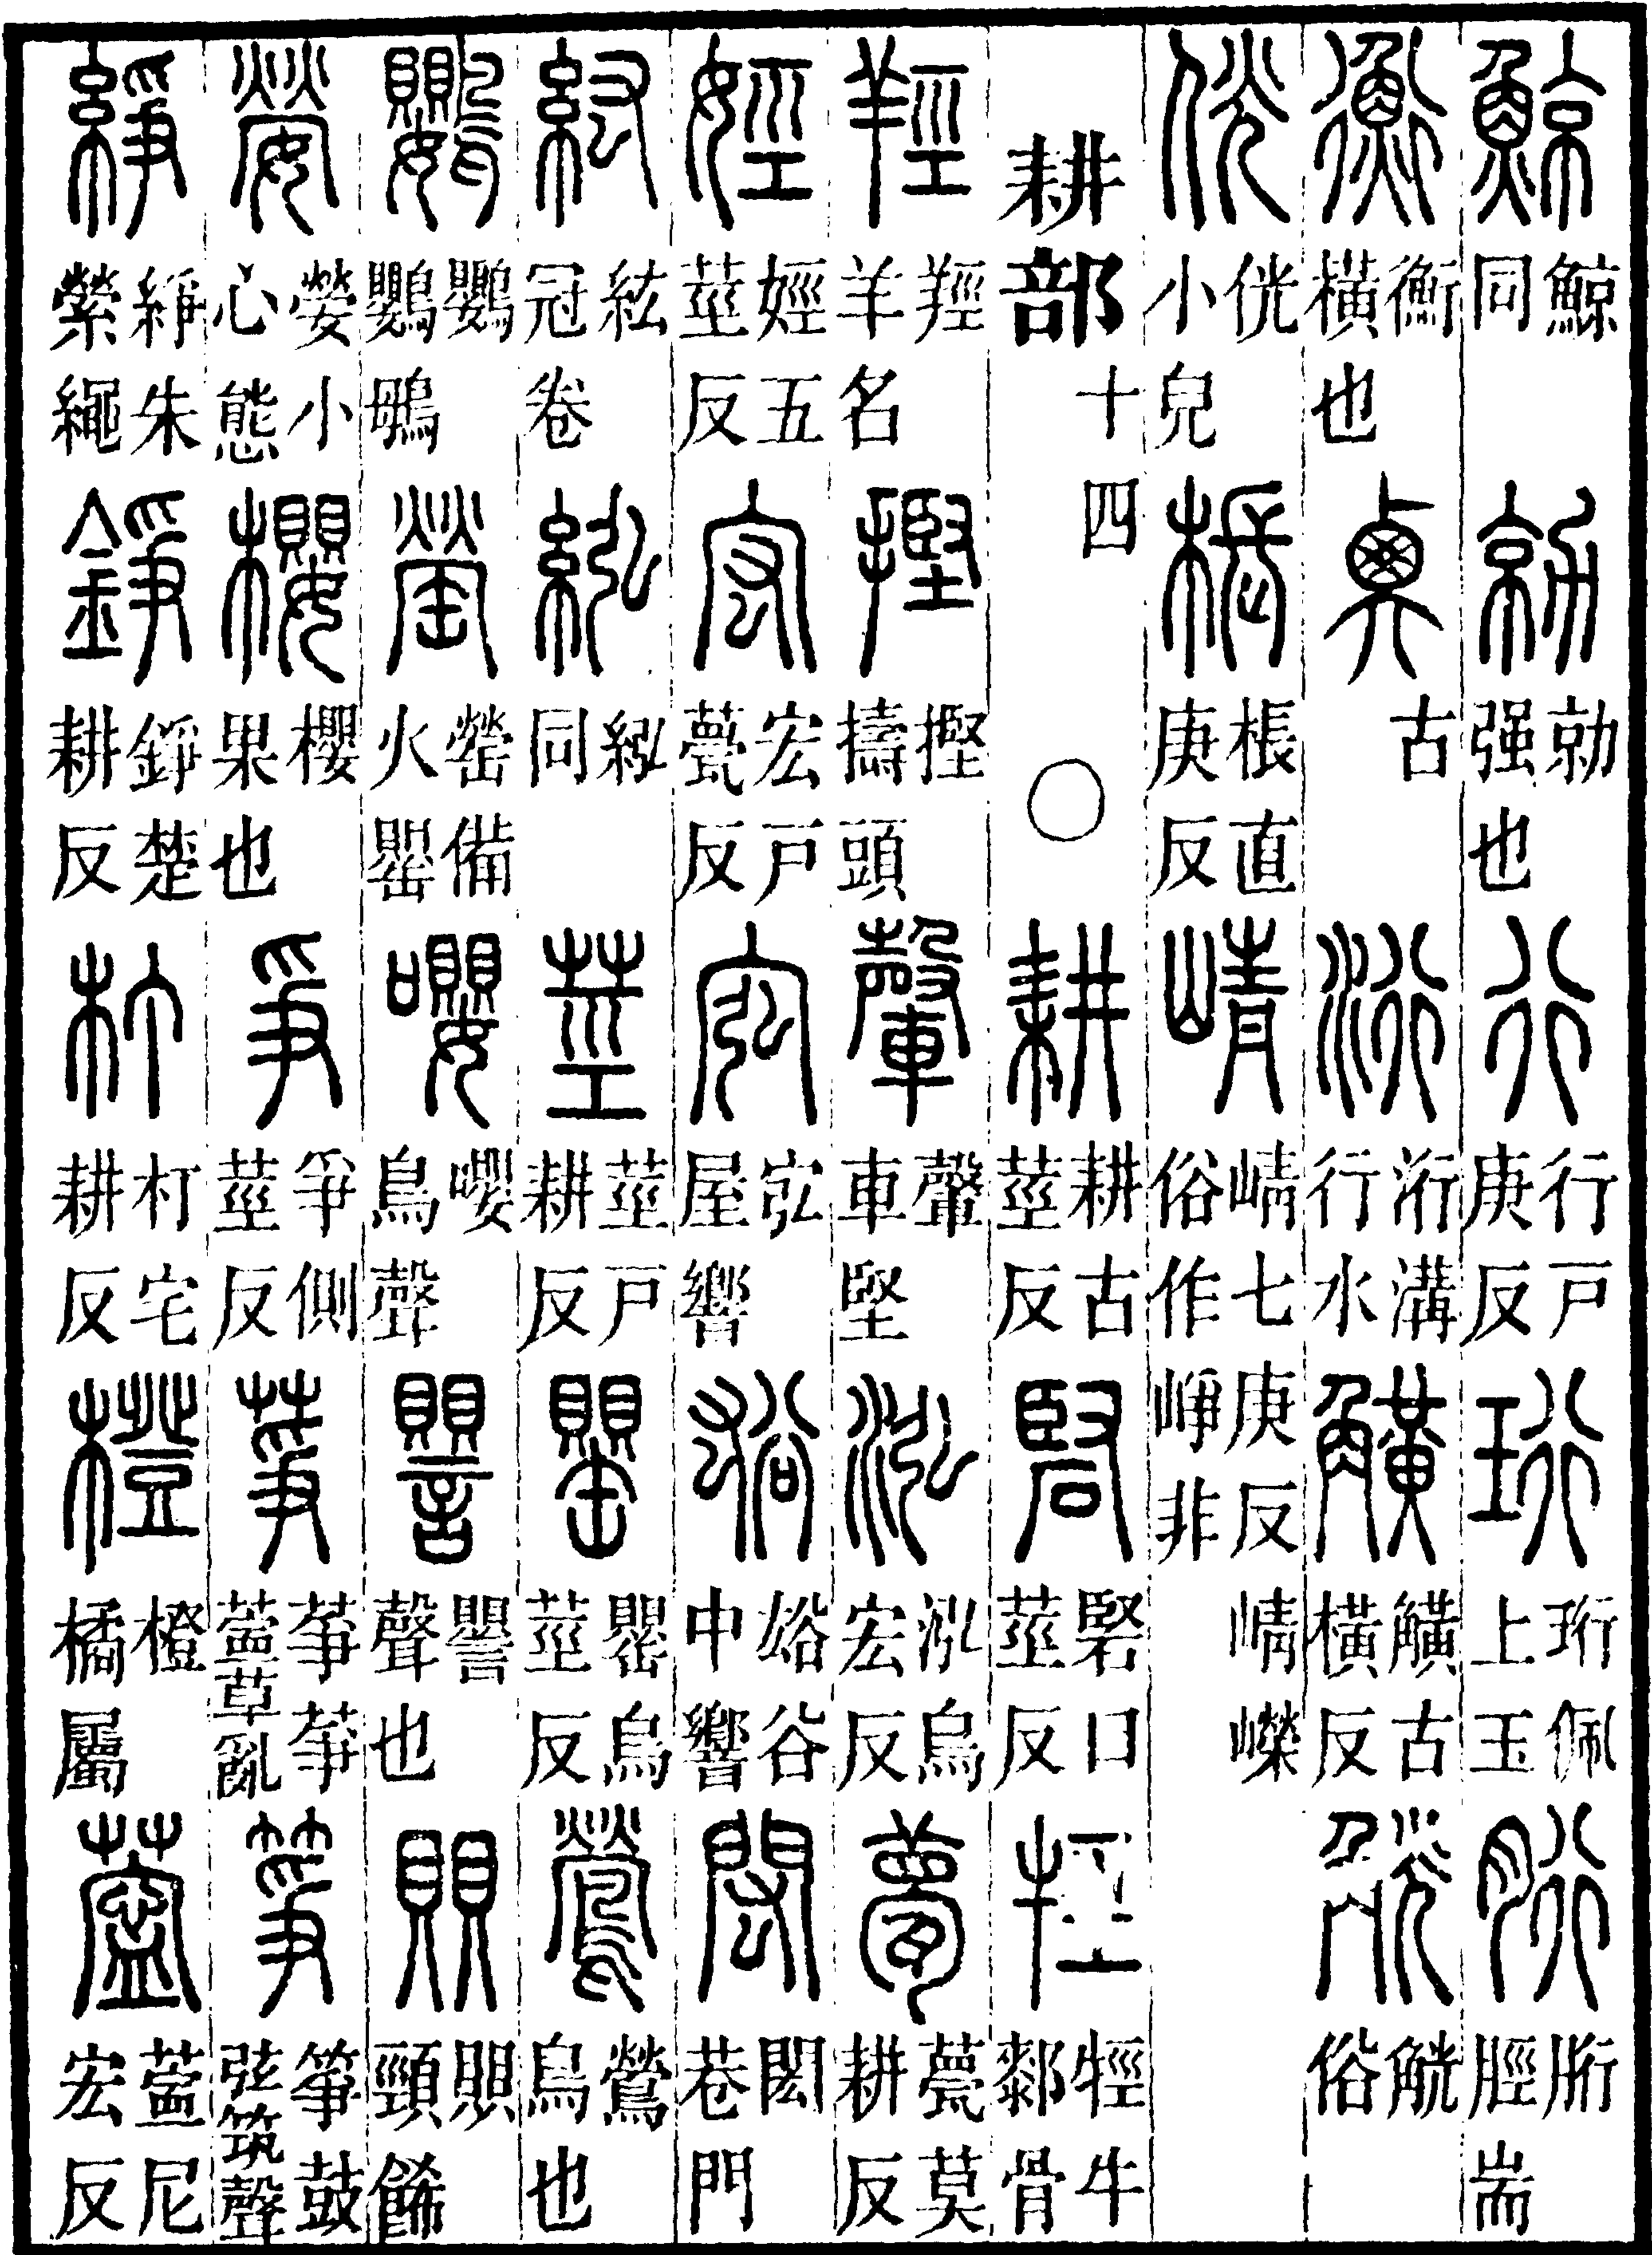 鯨鯨同勍勍强也行行戶庚反珩珩佩上玉胻胻脛耑
衡衡橫也古洐洐溝行水觵觵古橫反觥觥俗
侊侊小皃棖棖直庚反崝崝七庚反崝嶸俗作崢非
耕部十四○耕耕古莖反硻硻口莖反牼牼牛䣛骨
羥羥羊名摼摼擣頭䡰䡰車堅泓泓烏宏反甍甍莫耕反
娙娙五莖反宏宏戶甍反宖宖屋響谷中響閎閎巷門
紘紘冠卷紭紭同莖莖戶耕反罌罌烏莖反鶯鶯鳥也
鸚鸚鸚䳇罃罃備火罌嚶嚶鳥聲譻譻聲也賏賏頸飾
嫈嫈小心態櫻櫻果也爭爭側莖反草亂箏箏鼓弦筑聲
䋫䋫朱縈繩錚錚楚耕反朾朾宅耕反橙橙橘屬尼宏反